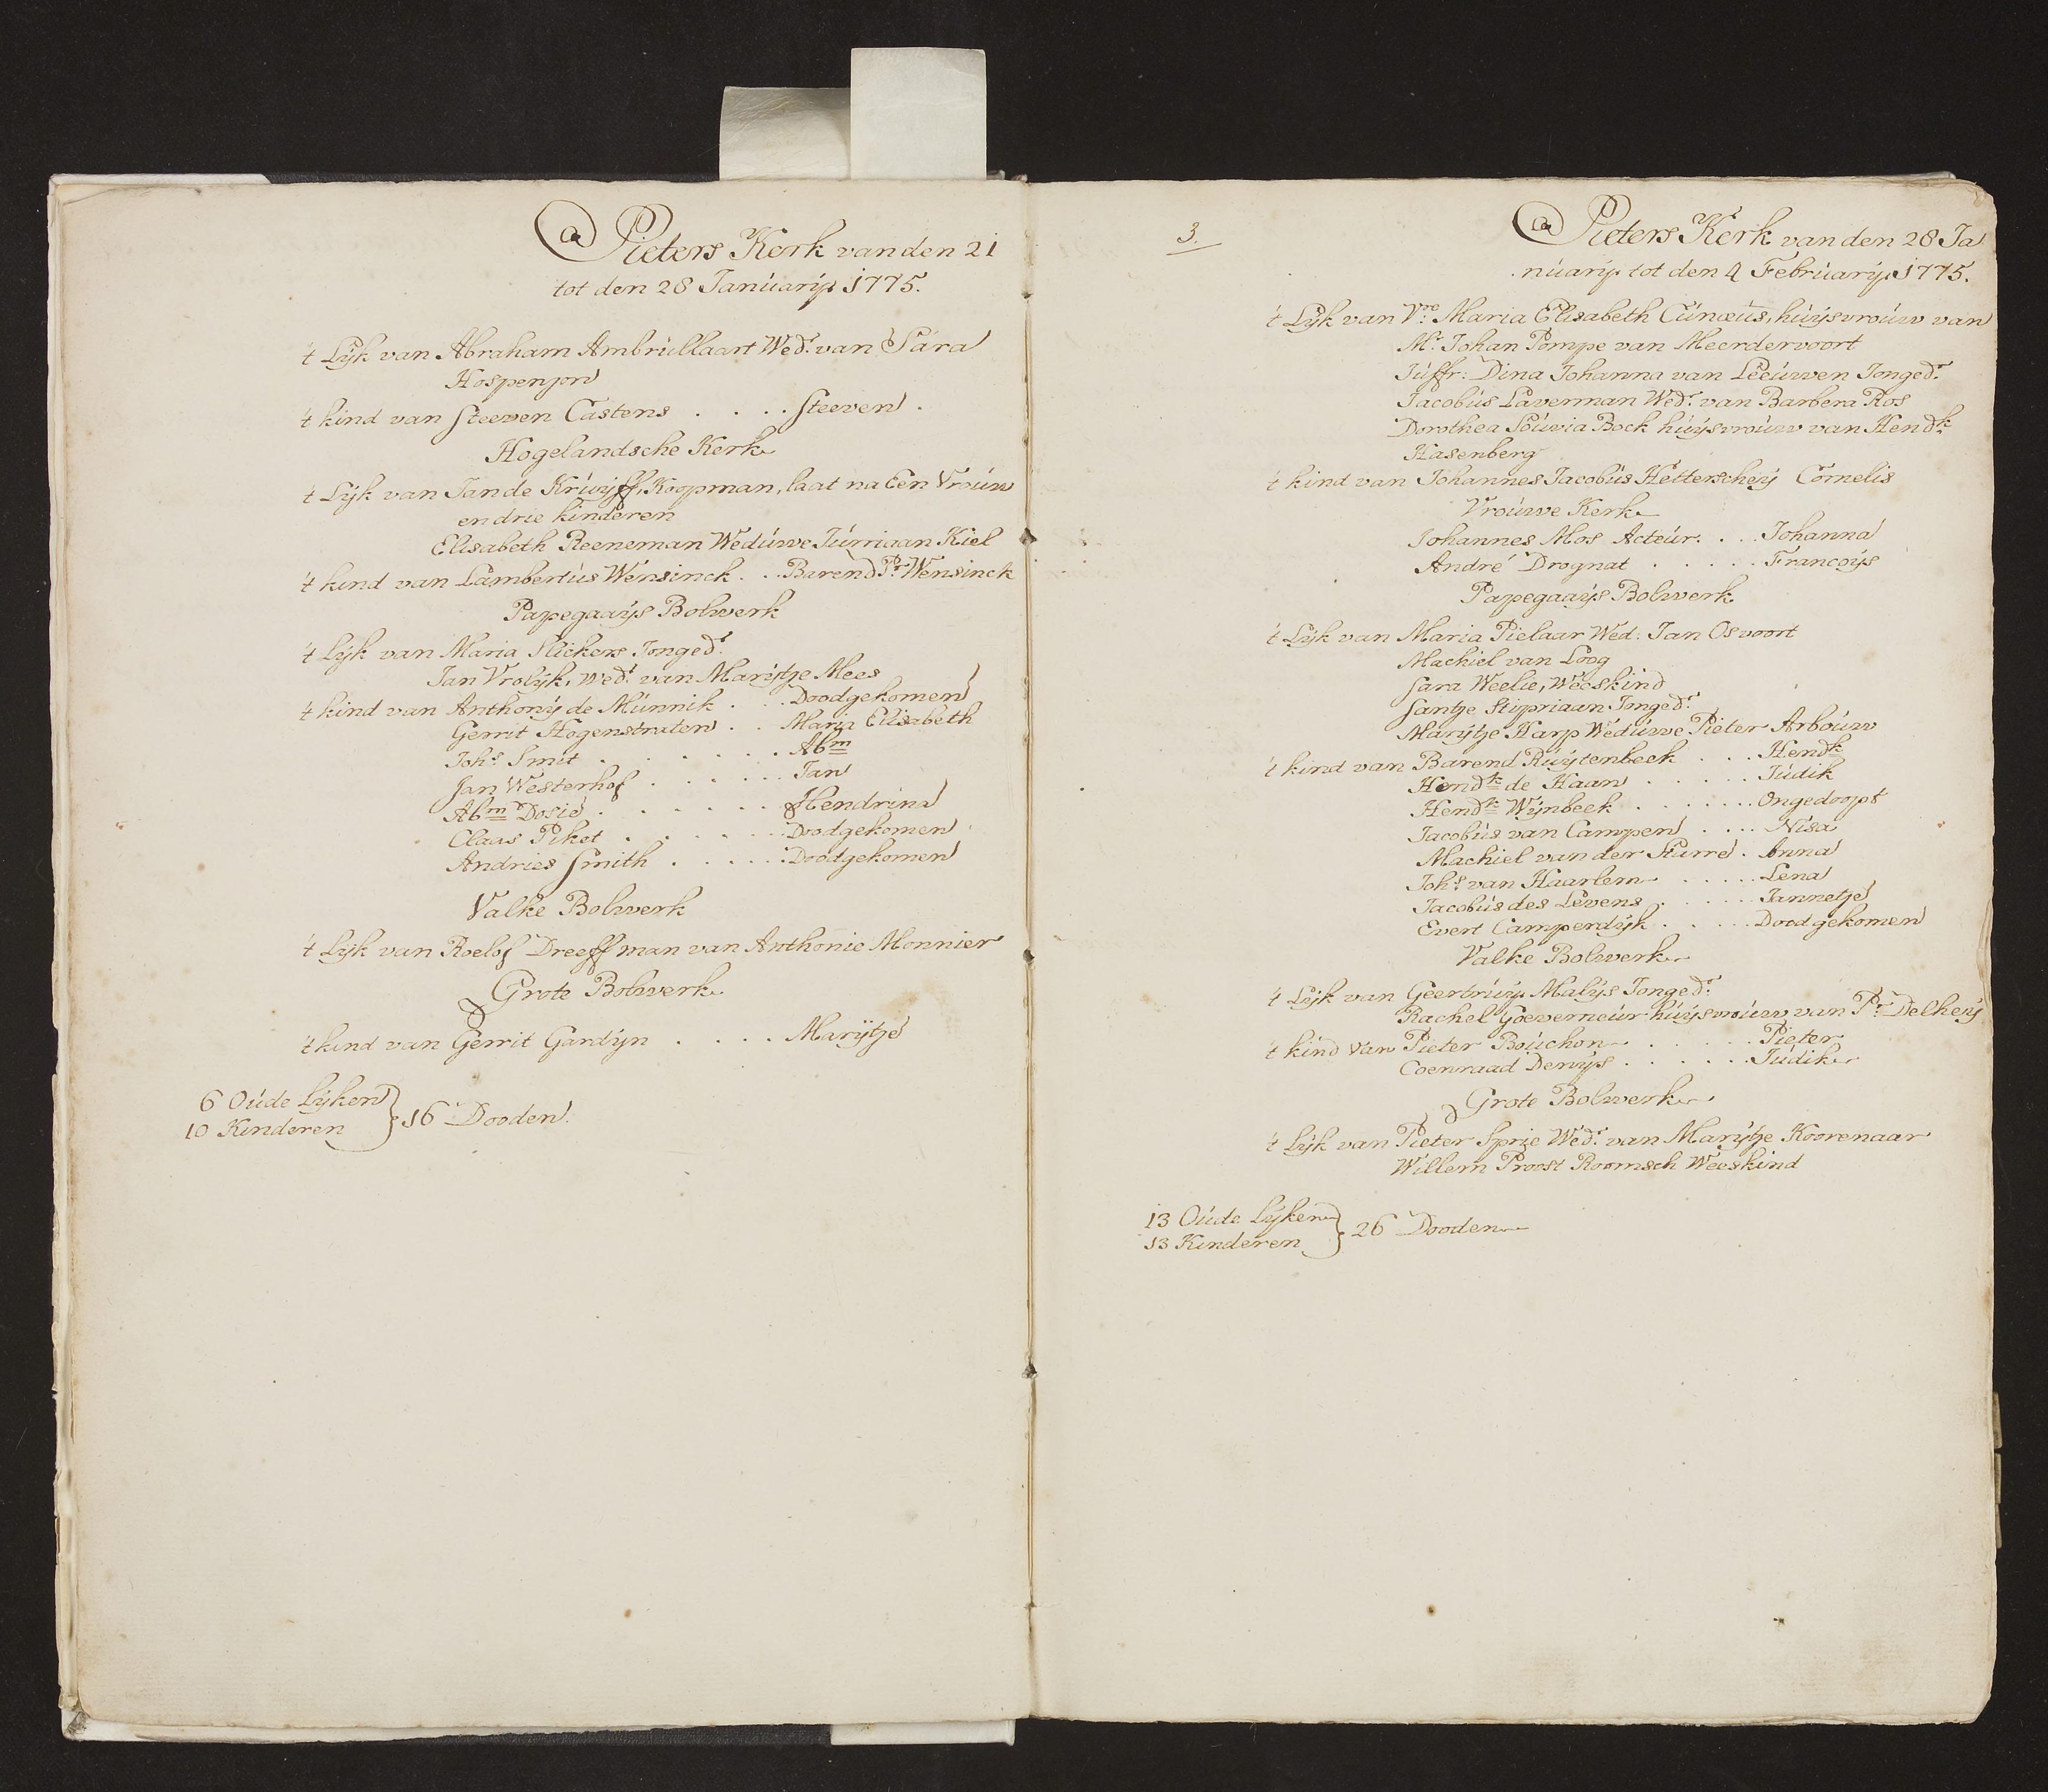 @ Pieters Kerk van den 21
tot den 28 Januarÿ 1775.
't Lÿk van Abraham Ambrullaart Wedr. van Sara
Hospenjon
't kind van Steeven Castens . . . . Steeven .
Hogelandsche Kerk
't Lÿk van Jan de Kruÿff, Koopman, laat na Een Vrouw
en drie kinderen
Elisabeth Reeneman Weduwe Jurriaan Kiel
't kind van Lambertus Wensinck . . . Barend Pr. Wensinck
Papegaaÿs Bolwerk
't Lÿk van Maria Slickers Jongedr.
Jan Vrolÿk, Wedr. van Marÿtje Mees
't kind van Anthonÿ de Munnik . . . Doodgekomen
Gerrit Hogenstraten . . Maria Elisabeth
Johs. Smit . . . . . . . Abm
Jan Westerhof . . . . . . Jan
Abm Dosie . . . . . . . Hendrina
Claas Piket . . . . . . . Doodgekomen
Andries Smith . . . . . Doodgekomen
Valke Bolwerk
't Lÿk van Roelof Dreeff man van Anthonie Monnier
Grote Bolwerk
't kind van Gerrit Gardÿn . . . . Marÿtje
6 Oude Lÿken
10 Kinderen } 16 Dooden.
3.
@ Pieters Kerk van den 28 Ja
nuarÿ tot den 4 Februarÿ 1775.
't Lÿk van Vre. Maria Elisabeth Cunæus, huÿsvrouw van
Mr. Johan Pompe van Meerdervoort
Juffr: Dina Johanna van Leeuwen Jongedr.
Jacobus Laverman Wedr. van Barbera Ros
Dorothea Louvia Bock huÿsvrouw van Hendk.
Hasenberg
't kind van Johannes Jacobus Hetterscheÿ Cornelis
Vrouwe Kerk
Johannes Mos Acteur. . . . Johanna
André Drognat . . . . . Francoÿs
Papegaaÿs Bolwerk
't Lÿk van Maria Pielaar Wed: Jan Osvoort
Machiel van Loog
Sara Weelie, Weeskind
Santje Stipriaan Jongedr.
Marÿtje Harp Weduwe Pieter Arbouw
't kind van Barend Ruÿtenbeek . . . Hendk
Hendk de Haan . . . . . . Judik
Hendk Wÿnbeek . . . . . . . Ongedoopt
Jacobus van Campen . . . . Nisa
Machiel van der Starre . Anna
Johs. van Haarlem . . . . . Lena
Jacobus des Levens . . . . . . Jannetje
Evert Camperdÿk . . . . . Doodgekomen
Valke Bolwerk
't Lÿk van Geertruÿ Malÿs Jongedr.
Rachel Goeverneur huÿsvrouw van Pr. Delheÿ
't kind van Pieter Bouchon . . . . . Pieter
Coenraad Denÿs . . . . . . Judik
Grote Bolwerk
't Lÿk van Pieter Sprie Wedr. van Marÿtje Koorenaar
Willem Proost Roomsch Weeskind
13 Oude Lÿken
13 Kinderen } 26 Dooden